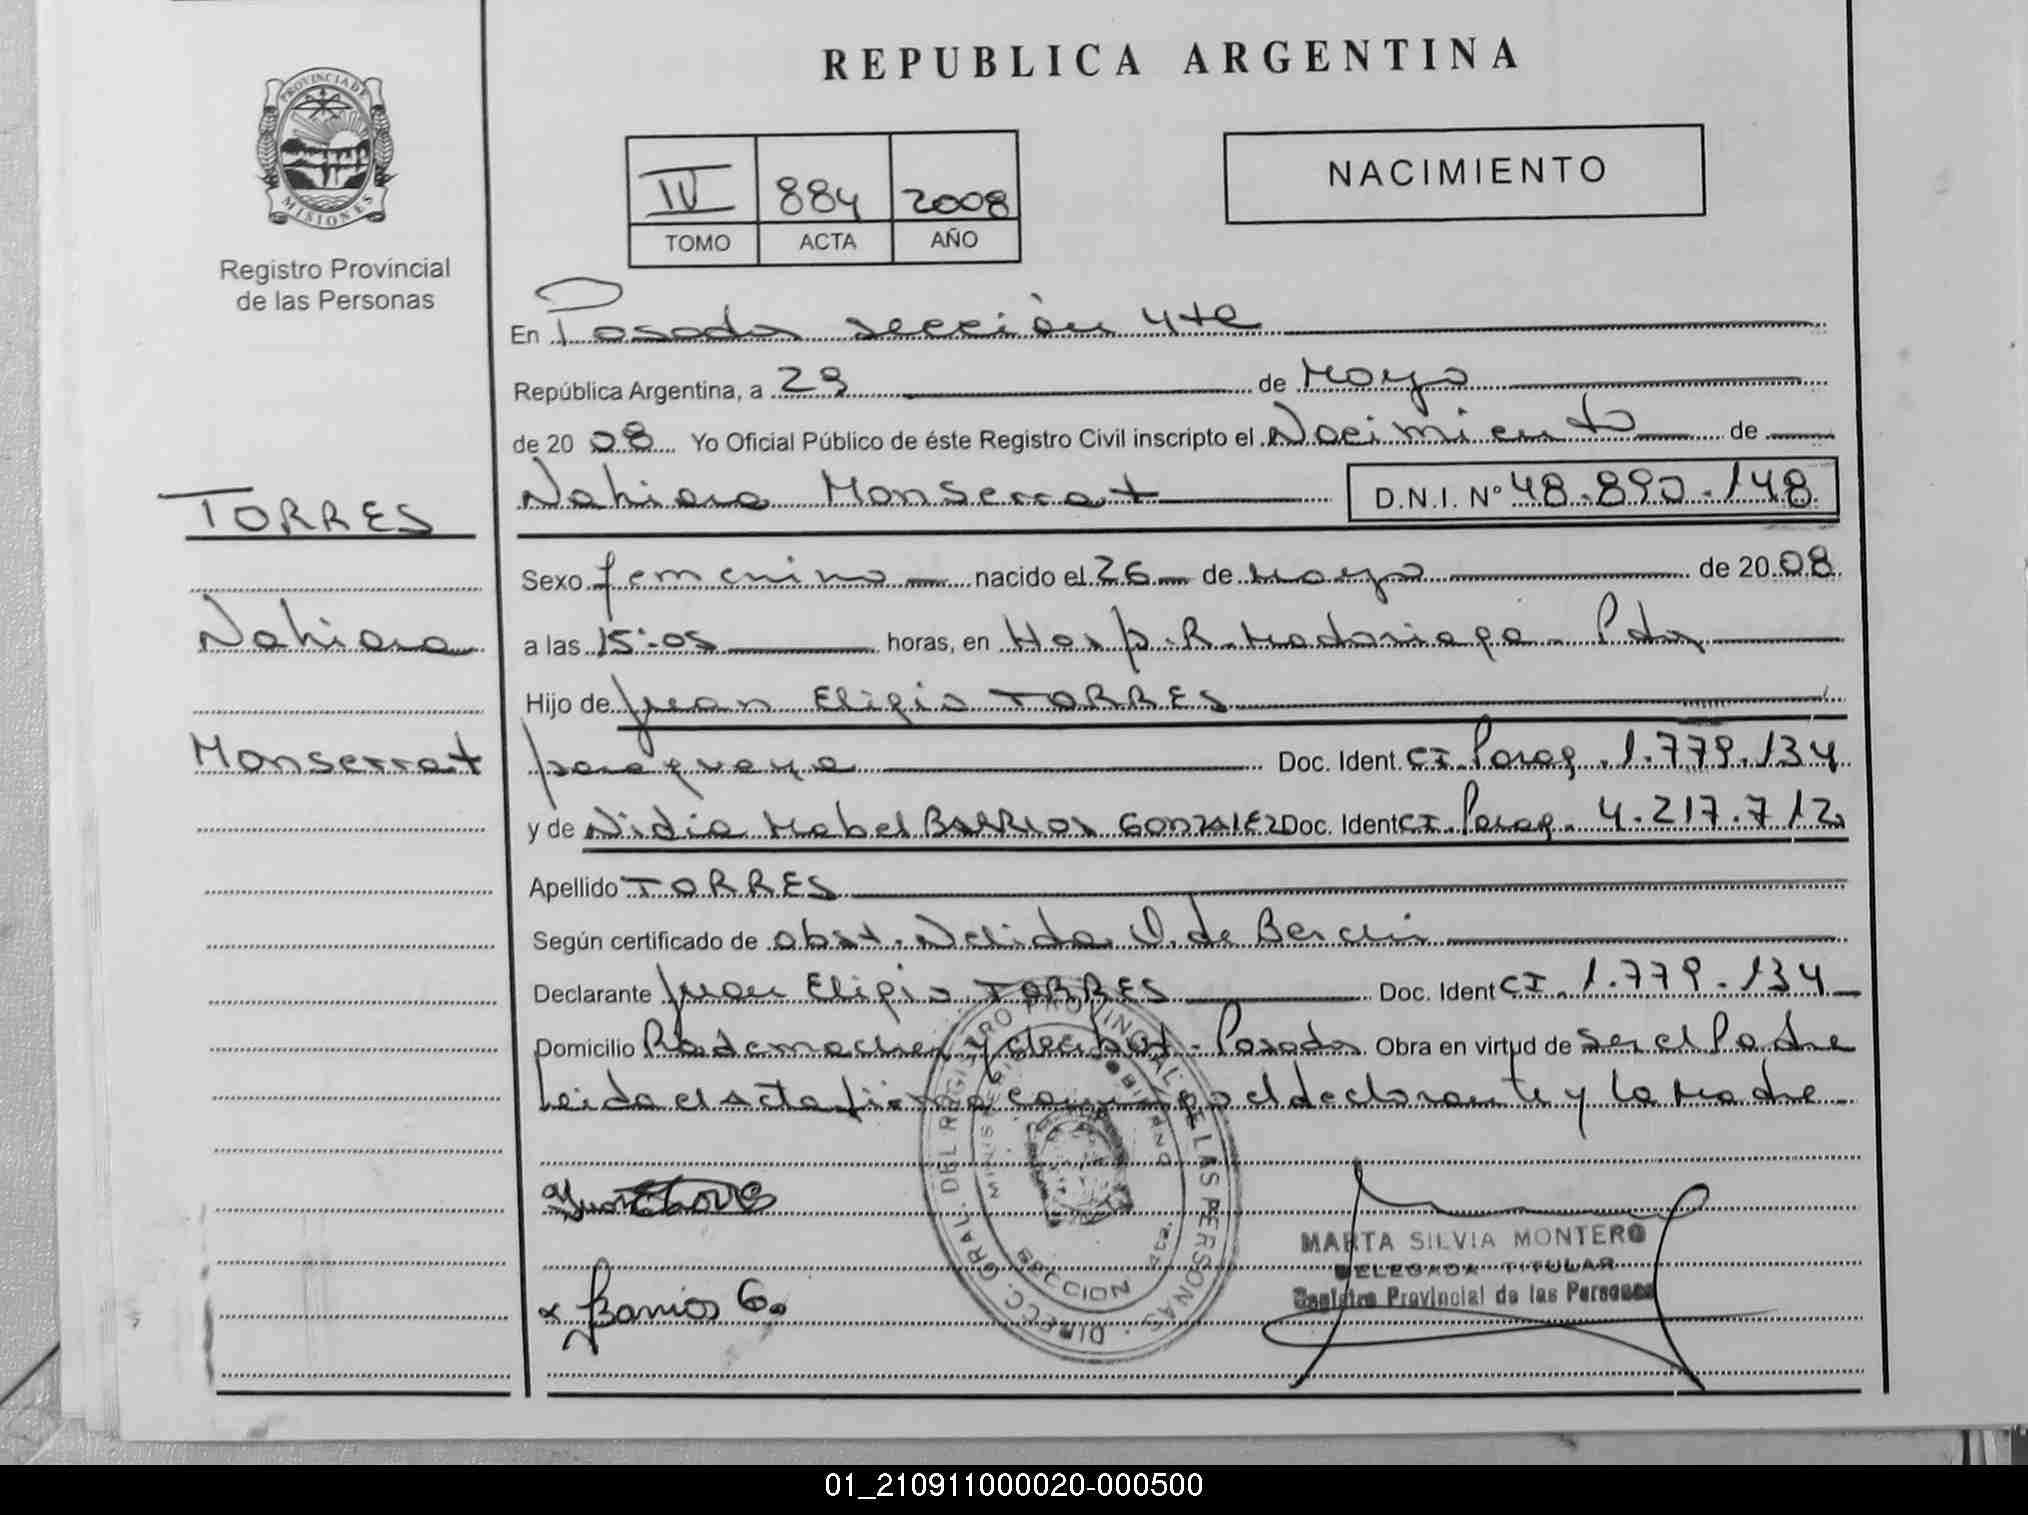 REPUBLICA ARGENTINA
PROVINCIA DE MISIONES
Registro Provincial
de las Personas
IV 884 2008
TOMO ACTA AÑO
NACIMIENTO
En Posadas sección 4ta
República Argentina, a 29 de Mayo
de 2008 Yo Oficial Público de éste Registro Civil inscripto el Nacimiento de
Nahiara Monserrat D.N.I. Nº 48.890.148
TORRES
Nahiara
Monserrat
Sexo femenino nacido el 26 de Mayo de 2008
a las 15:05 horas, en Hosp. R. Madariaga - Pdas
Hijo de Juan Eligio TORRES
paraguaya Doc. Ident. CI. Parag. 1.779.134
y de Nidia Mabel BARRIOS GONZALEZ Doc. Ident CI. Parag. 4.217.712
Apellido TORRES
Según certificado de obst. Nelida O. de
Declarante Juan Eligio TORRES Doc. Ident CI. 1.779.134
Domicilio Rademacher y - Posadas. Obra en virtud de ser el Padre
Leida el acta firma conmigo el declarante y la Madre
DIRECC. GRAL. DEL REGISTRO PROVINCIAL DE LAS PERSONAS
SECCION 4ta.
Barrios G.
MARTA SILVIA MONTERO
DELEGADA TITULAR
Registro Provincial de las Personas
01_210911000020-000500